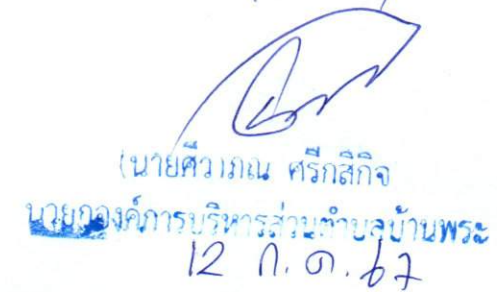 (นายศิวาภณ ศรีกสิกิจ
นายกองค์การบริหารส่วนตำบลบ้านพระ
12 ก.ค. 67